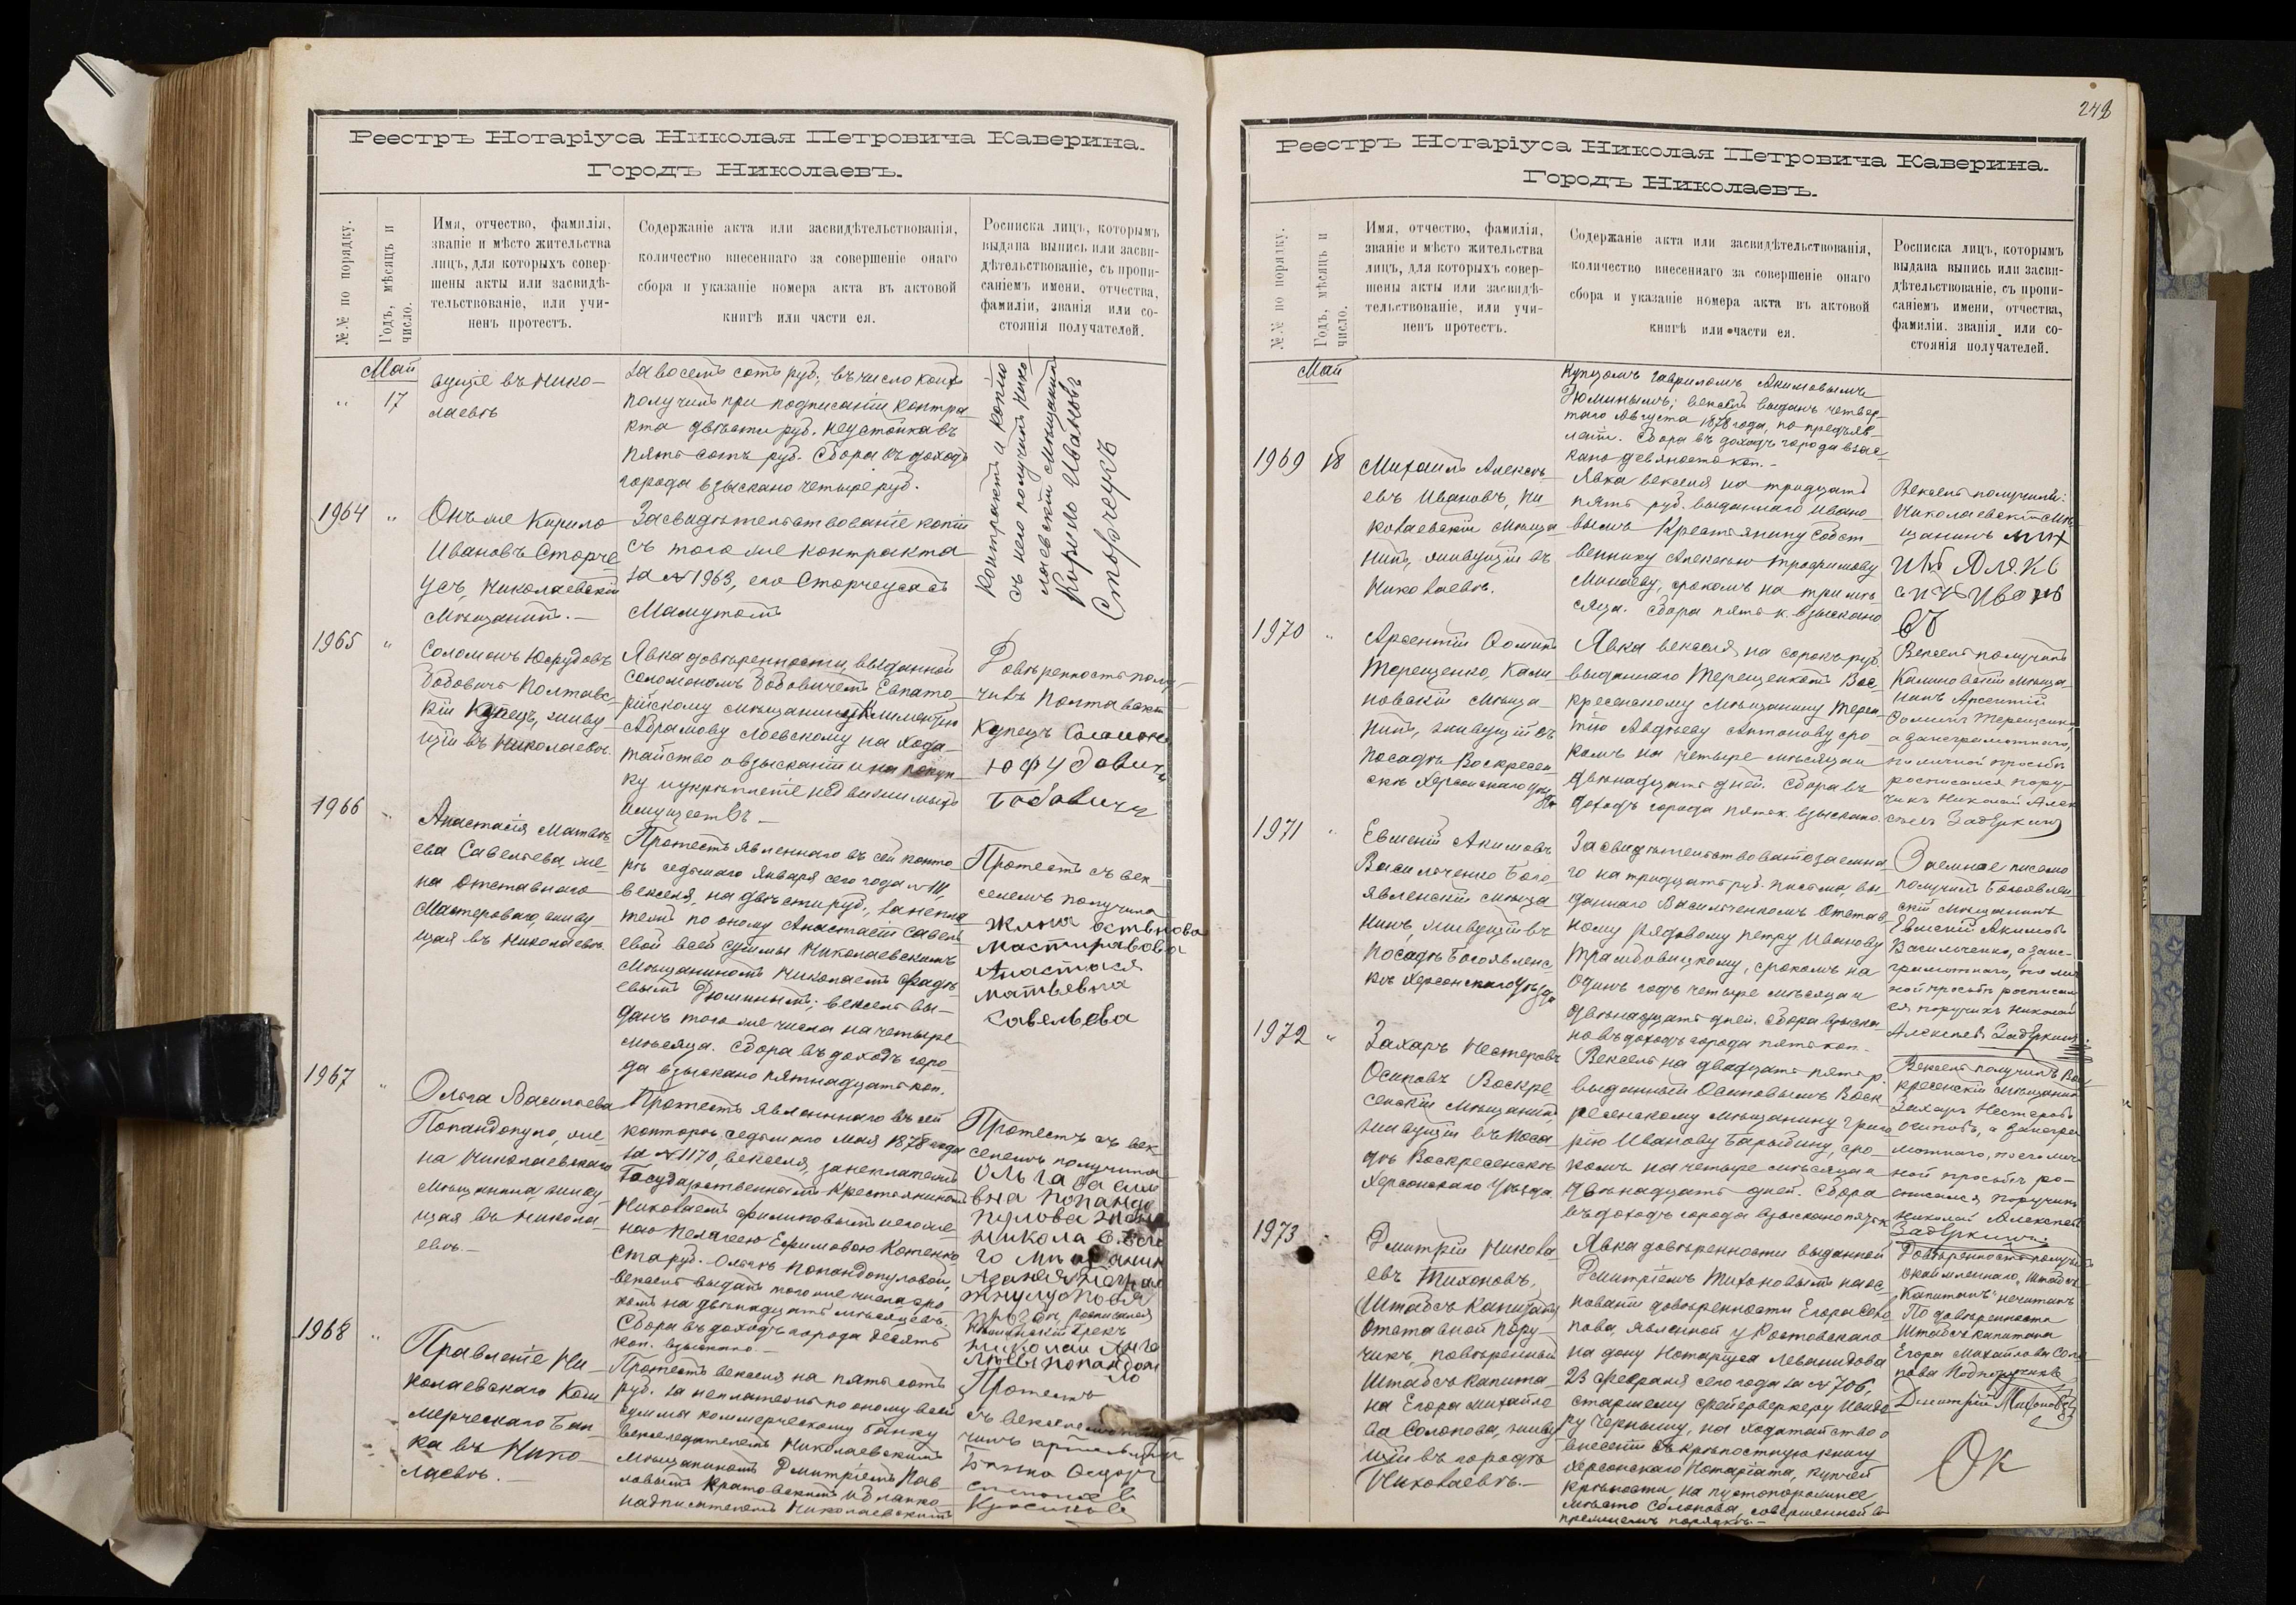 Реестръ Нотаріуса Николая Петровича Каверина.
Городъ Николаевъ.
№№ по порядку.
Годъ, мѣсяцъ и
число.
Имя, отчество, фамилія,
званіе и мѣсто жительства
лицъ, для которыхъ совер-
шены акты или засвидѣ-
тельствованіе, или учи-
ненъ протестъ.
Содержаніе акта или засвидѣтельствованія,
количество внесеннаго за совершеніе онаго
сбора и указаніе номера акта въ актовой
книгѣ или части ея.
Росписка лицъ, которымъ
выдана выпись или засви-
дѣтельствованіе, съ пропи-
саніемъ имени, отчества,
фамиліи, званія или со-
стоянія получателей.
Май
" 17
вущіе въ Нико-
лаевѣ
за восемь сотъ руб., въ число коихъ
получилъ при подписаніи контра
кта двѣсти руб. неустойка въ
пять сотъ руб. Сбора въ доходъ
города взыскано четыре руб.
Контрактъ и копію
съ него получилъ Нико
лаевскій мѣщанинъ
Кирило Ивановъ
Сторчеусъ
1964 "
Онъ же Кирило
Ивановъ Сторче
усъ, Николаевскій
Мѣщанинъ.—
Засвидѣтельствованіе копіи
съ того же контракта
за № 1963, его Сторчеуса съ
Мамутомъ
1965 "
Соломонъ Юфудовъ
Бобовичъ Полтавс-
кій Купецъ, живу
щій въ Николаевѣ.
Явка довѣренности, выданной
Соломономъ Бобовичемъ Евпато-
рійскому мѣщанину Климентію
Абрамову Лоевскому на хода-
тайство о взысканіи и на покуп-
ку и укрѣпленіе недвижимыхъ
имуществъ —
Довѣренность полу-
чилъ Полтавскій
Купецъ Соломонъ
Юфудовичъ
Бобовичъ
1966 "
Анастасія Матвѣ
ева Савельева, же
на отставнаго
Мастероваго, живу
щая въ Николаевѣ.
Протестъ явленнаго въ сей конто-
рѣ седьмаго Января сего года № 111,
векселя, на двѣсти руб., за непла
тежъ по оному Анастасіи Савель
евой всей суммы Николаевскимъ
Мѣщаниномъ Николаемъ Фадѣ-
евымъ Дюминымъ; вексель вы-
данъ того же числа на четыре
мѣсяца. Сбора въ доходъ горо-
да взыскано пятнадцать коп.
Протестъ съ век-
селемъ получила
Жина оставнова
мастиравова
Анастася
матьевна
Савельева
1967 "
Ольга Васильева
Попандопуло, же-
на Николаевскаго
Мѣщанина, живу-
щая въ Никола-
евѣ.—
Протестъ явленнаго въ сей
конторѣ седьмаго Мая 1878 года
за № 1170, векселя, за неплатежъ
Государственнымъ Крестьяниномъ
Николаемъ Филиповымъ и его же-
ною Пелагеею Ефимовою Котенко
ста руб. Ольгѣ Попандопуловой,
вексель выданъ того же числа сро-
комъ на двѣнадцать мѣсяцевъ.
Сбора въ доходъ города десять
коп. взыскано.—
Протестъ съ век-
селемъ получила
Ольга Васили
вна Попандо
пулова
1968 "
Правленіе Ни-
колаевскаго Ком
мерческаго Бан-
ка въ Нико-
лаевѣ.—
Протестъ векселя на пять сотъ
руб. за неплатежъ по оному всей
суммы коммерческому банку
векселедателемъ Николаевскимъ
мѣщаниномъ Дмитріемъ Пав-
ловымъ Кратовскимъ и бланко-
надписателемъ Николаевскимъ
Протестъ
съ векселемъ
242
Реестръ Нотаріуса Николая Петровича Каверина.
Городъ Николаевъ.
№№ по порядку.
Годъ, мѣсяцъ и
число.
Имя, отчество, фамилія,
званіе и мѣсто жительства
лицъ, для которыхъ совер-
шены акты или засвидѣ-
тельствованіе, или учи-
ненъ протестъ.
Содержаніе акта или засвидѣтельствованія,
количество внесеннаго за совершеніе онаго
сбора и указаніе номера акта въ актовой
книгѣ или части ея.
Росписка лицъ, которымъ
выдана выпись или засви-
дѣтельствованіе, съ пропи-
саніемъ имени, отчества,
фамиліи. званія или со-
стоянія получателей.
Май
Купцомъ Гавриломъ Акимовымъ
Дюминымъ; вексель выданъ четвер-
таго Августа 1878 года, по предъяв-
леніи. Сбора въ доходъ города взыс-
кано девяносто коп.—
1969 18
Михаилъ Алексѣ-
евъ Ивановъ, Ни-
колаевскій мѣща
нинъ, живущій въ
Николаевѣ.
Явка векселя на тридцать
пять руб. выданнаго Ивано-
вымъ Крестьянину Собст-
веннику Алексѣю Трофимову
Минаеву, срокомъ на три мѣ-
сяца. Сбора пять к. взыскано
Вексель получилъ:
Николаевскій мѣ-
щанинъ
1970 "
Арсентій Фоминъ
Терещенко, Кали-
новскій мѣща-
нинъ, живущій въ
посадѣ Воскресен-
скѣ Херсонскаго уѣзда
Явка векселя на сорокъ руб.
выданнаго Терещенкомъ Вос-
кресенскому мѣщанину Терен
тію Авдѣеву Антонову сро-
комъ на четыре мѣсяца и
двѣнадцать дней. Сбора въ
доходъ города пять к. взыскано.
Вексель получилъ
Калиновскій мѣща-
нинъ Арсентій
Фоминъ Терещенко,
а за неграмотнаго,
по личной просьбѣ
росписался пору-
чикъ Николай Алек
сѣевъ Задеркинъ
1971 "
Евменій Акимовъ
Васильченко Бого-
явленскій мѣща-
нинъ, живущій въ
посадѣ Богоявленс
кѣ Херсонскаго уѣзда
Засвидѣтельствованіе заемна
го на тридцать руб. письма, вы-
даннаго Васильченкомъ Отстав-
ному рядовому Петру Иванову
Трамбовицкому, срокомъ на
одинъ годъ четыре мѣсяца и
двѣнадцать дней. Сбора взыска-
но въ доходъ города пять коп.
Заемное письмо
получилъ Богоявлен-
скій мѣщанинъ
Евменій Акимовъ
Васильченко, а за не-
грамотнаго, по лич
ной просьбѣ росписал
ся поручикъ Николай
Алексѣевъ Задеркинъ.
1972 "
Захаръ Нестеровъ
Осиповъ Воскре
сенскій Мѣщанинъ,
живущій въ поса-
дѣ Воскресенскѣ
Херсонскаго уѣзда.
Вексель на двадцать пять р.
выданный Осиповымъ Воск-
ресенскому мѣщанину Григо
рію Иванову Барыбину, сро-
комъ на четыре мѣсяца и
двѣнадцать дней. Сбора
въ доходъ города взыскано пять к
Вексель получилъ Вос
кресенскій мѣщанинъ
Захаръ Нестеровъ
Осиповъ, а за негра
мотнаго, по его лич-
ной просьбѣ ро-
списался поручикъ
Николай Алексѣевъ
Задеркинъ.
1973 "
Дмитрій Никола
евъ Тихоновъ,
(Штабсъ Капитанъ)
Отставной Пору-
чикъ, повѣренный
Штабсъ Капита-
на Егора Михайло
ва Солопова, живу
щій въ городѣ
Николаевѣ.—
Явка довѣренности выданной
Дмитріемъ Тихоновымъ на ос-
нованіи довѣренности Егора Соло
пова, явленной у Ростовскаго
на Дону Нотаріуса Леванидова
23 февраля сего года за № 706,
старшему фейерверкеру Ивано
ву Черныму, на ходатайство о
внесеніи въ крѣпостную книгу
Херсонскаго Нотаріата, купчей
крѣпости на пустопорожнее
мѣсто Солопова, совершенной въ
прежнемъ порядкѣ.—
Довѣренность получ
Капитанъ" нечитать
По довѣренности
Штабсъ капитана
Егора Михайлова Соло
пова Подпоручикъ
Дмитрій Тихоновъ